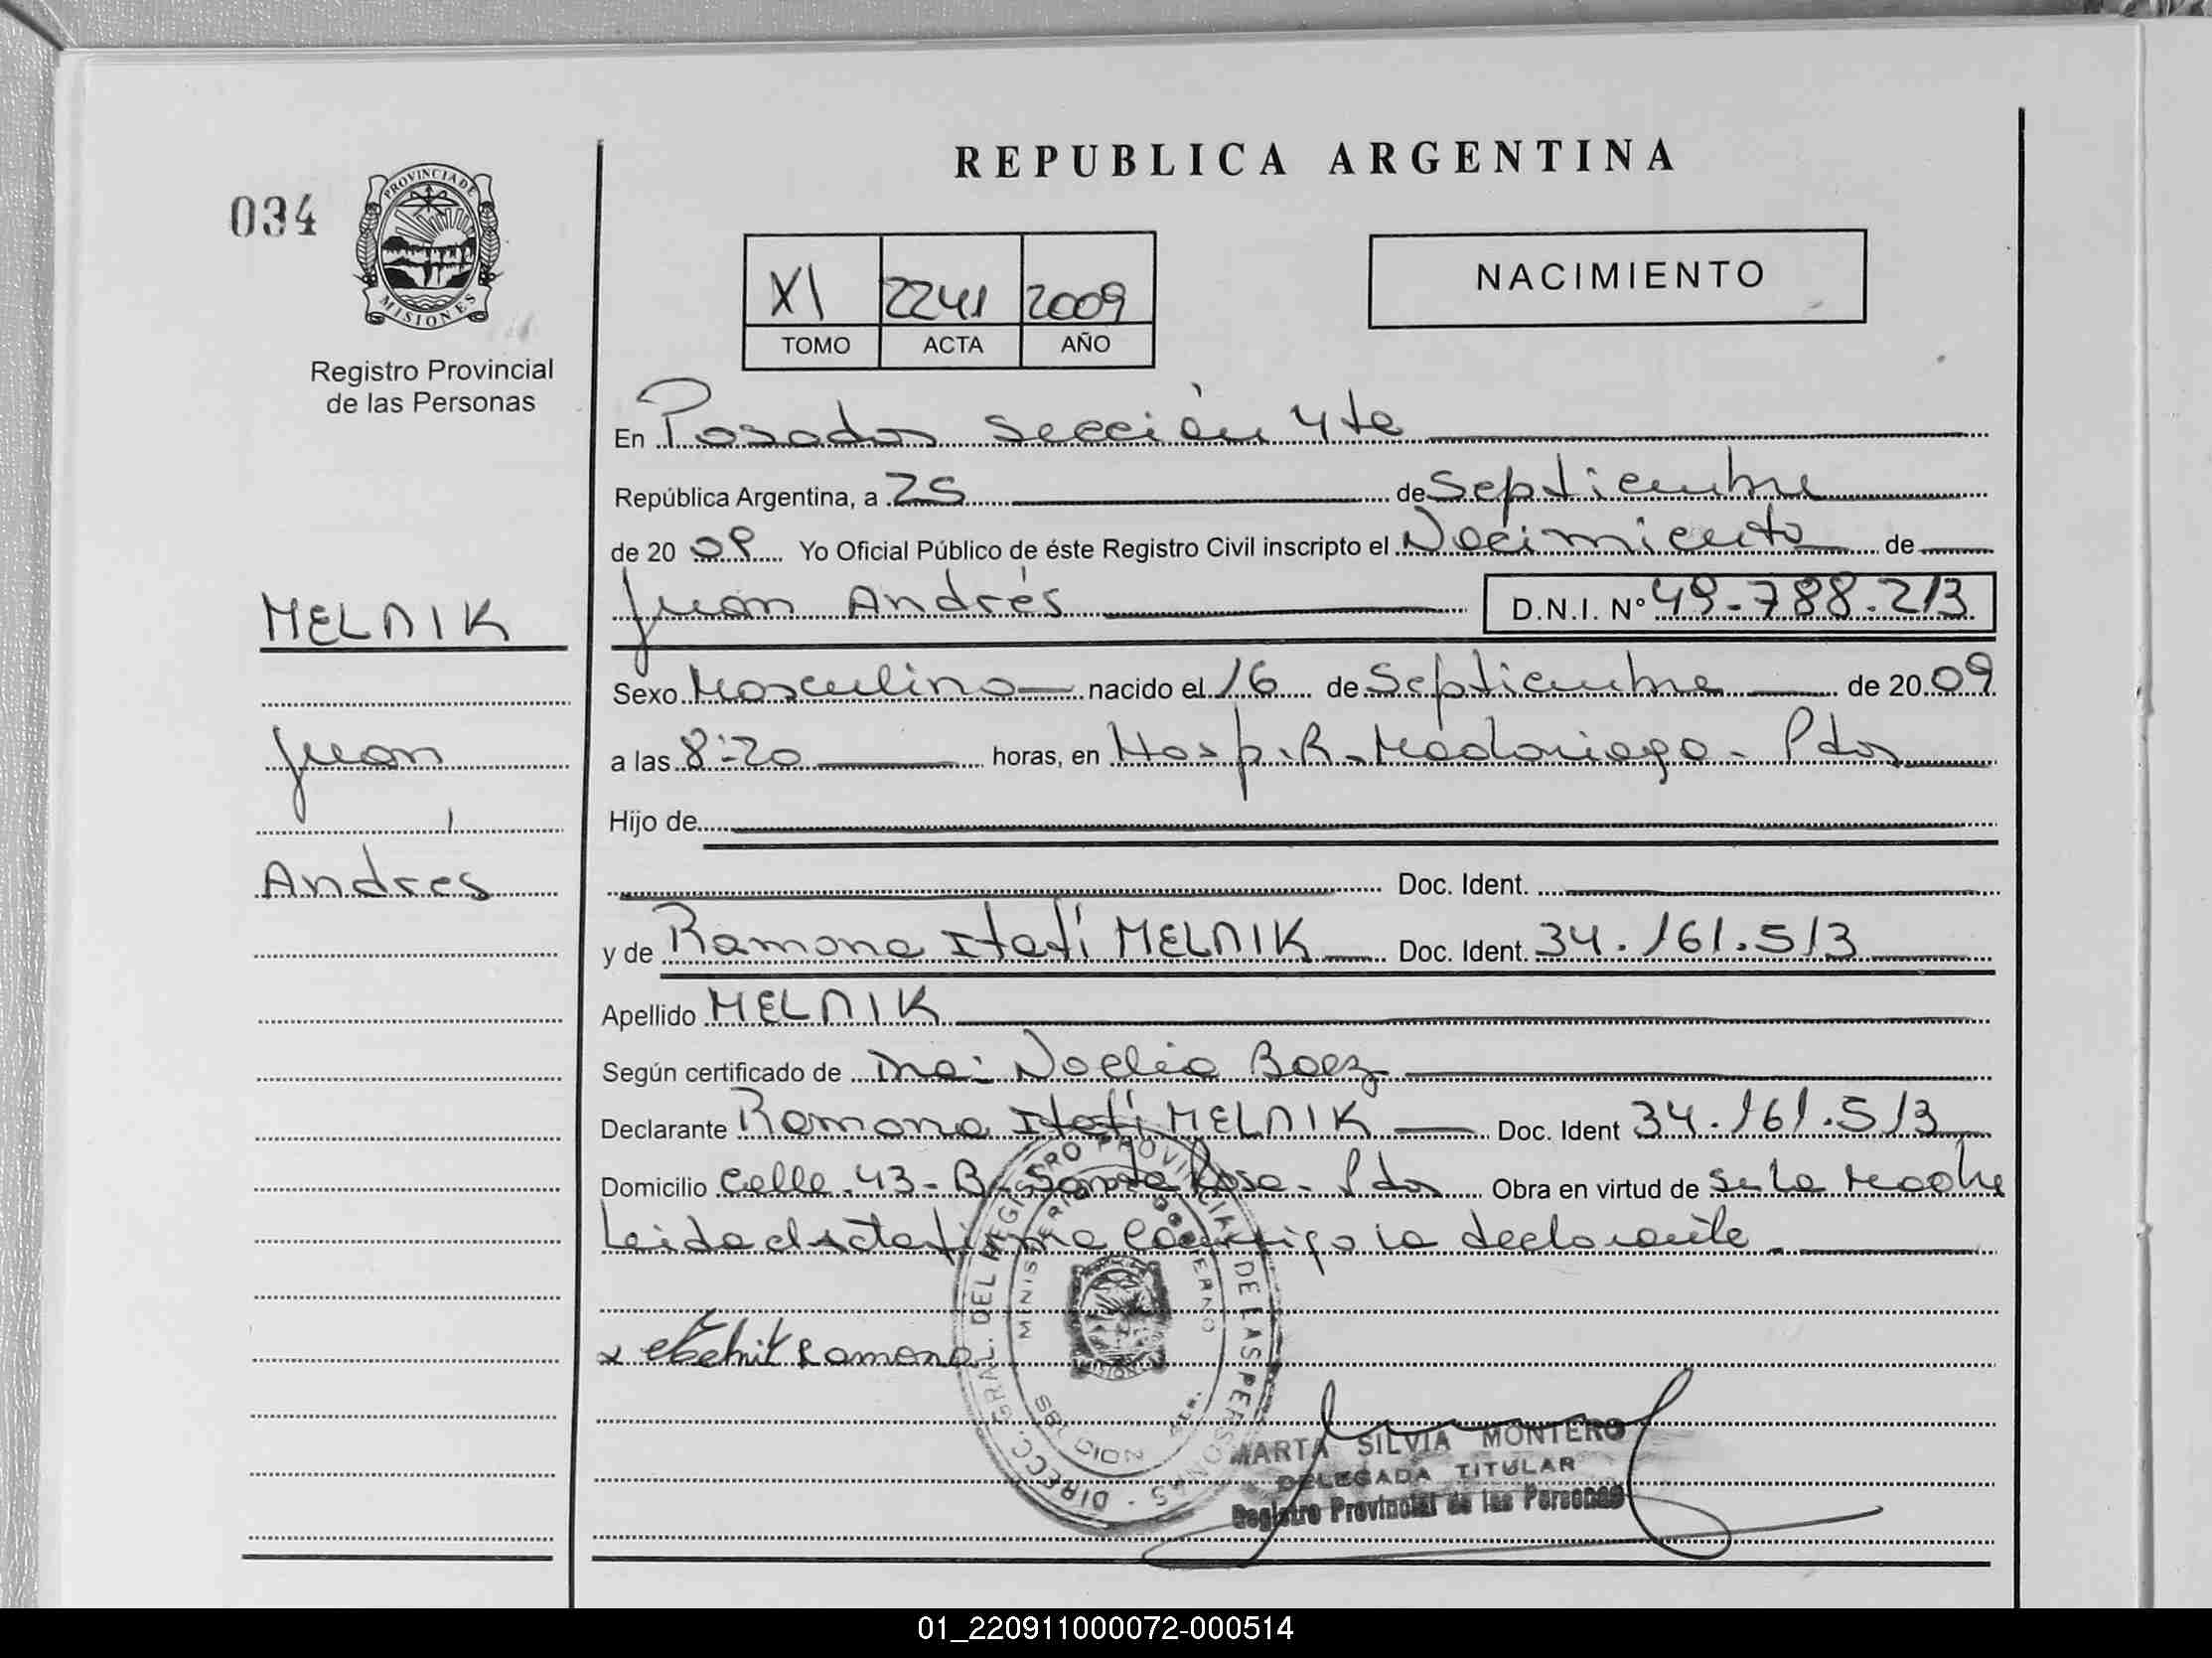 REPUBLICA ARGENTINA
034
PROVINCIA DE
MISIONES
Registro Provincial
de las Personas
XI 2241 2009
TOMO ACTA AÑO
NACIMIENTO
En Posadas Sección 4ta
República Argentina, a 25 de Septiembre
de 20 09 Yo Oficial Público de éste Registro Civil inscripto el Nacimiento de
Juan Andrés D.N.I. Nº 49.788.213
MELNIK
Juan
Andrés
Sexo Masculino nacido el 16 de Septiembre de 20 09
a las 8:20 horas, en Hosp. R. Madariaga - Pdas
Hijo de
Doc. Ident.
y de Ramona Itatí MELNIK Doc. Ident. 34.161.513
Apellido MELNIK
Según certificado de Dra: Noelia Baez
Declarante Ramona Itatí MELNIK Doc. Ident 34.161.513
Domicilio Calle 43 - B Santa Rosa - Pdas Obra en virtud de Se la Madre
Leida el acta firma conmigo la declarante.
Ramona
DIRECC. GRAL. DEL REGISTRO PROVINCIAL DE LAS PERSONAS
MINISTERIO DE GOBIERNO
MARTA SILVIA MONTERO
DELEGADA TITULAR
Registro Provincial de las Personas
01_220911000072-000514